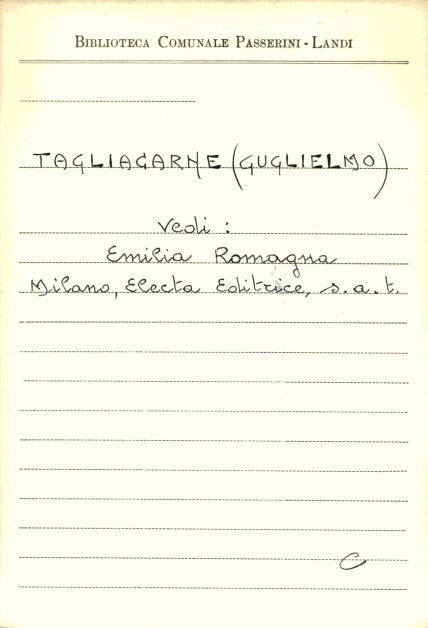 BIBLIOTECA COMUNALE PASSERINI - LANDI
TAGLIACARNE (GUGLIELMO)
Vedi :
Emilia Romagna
Milano, Electa Editrice, s.a.t.
C